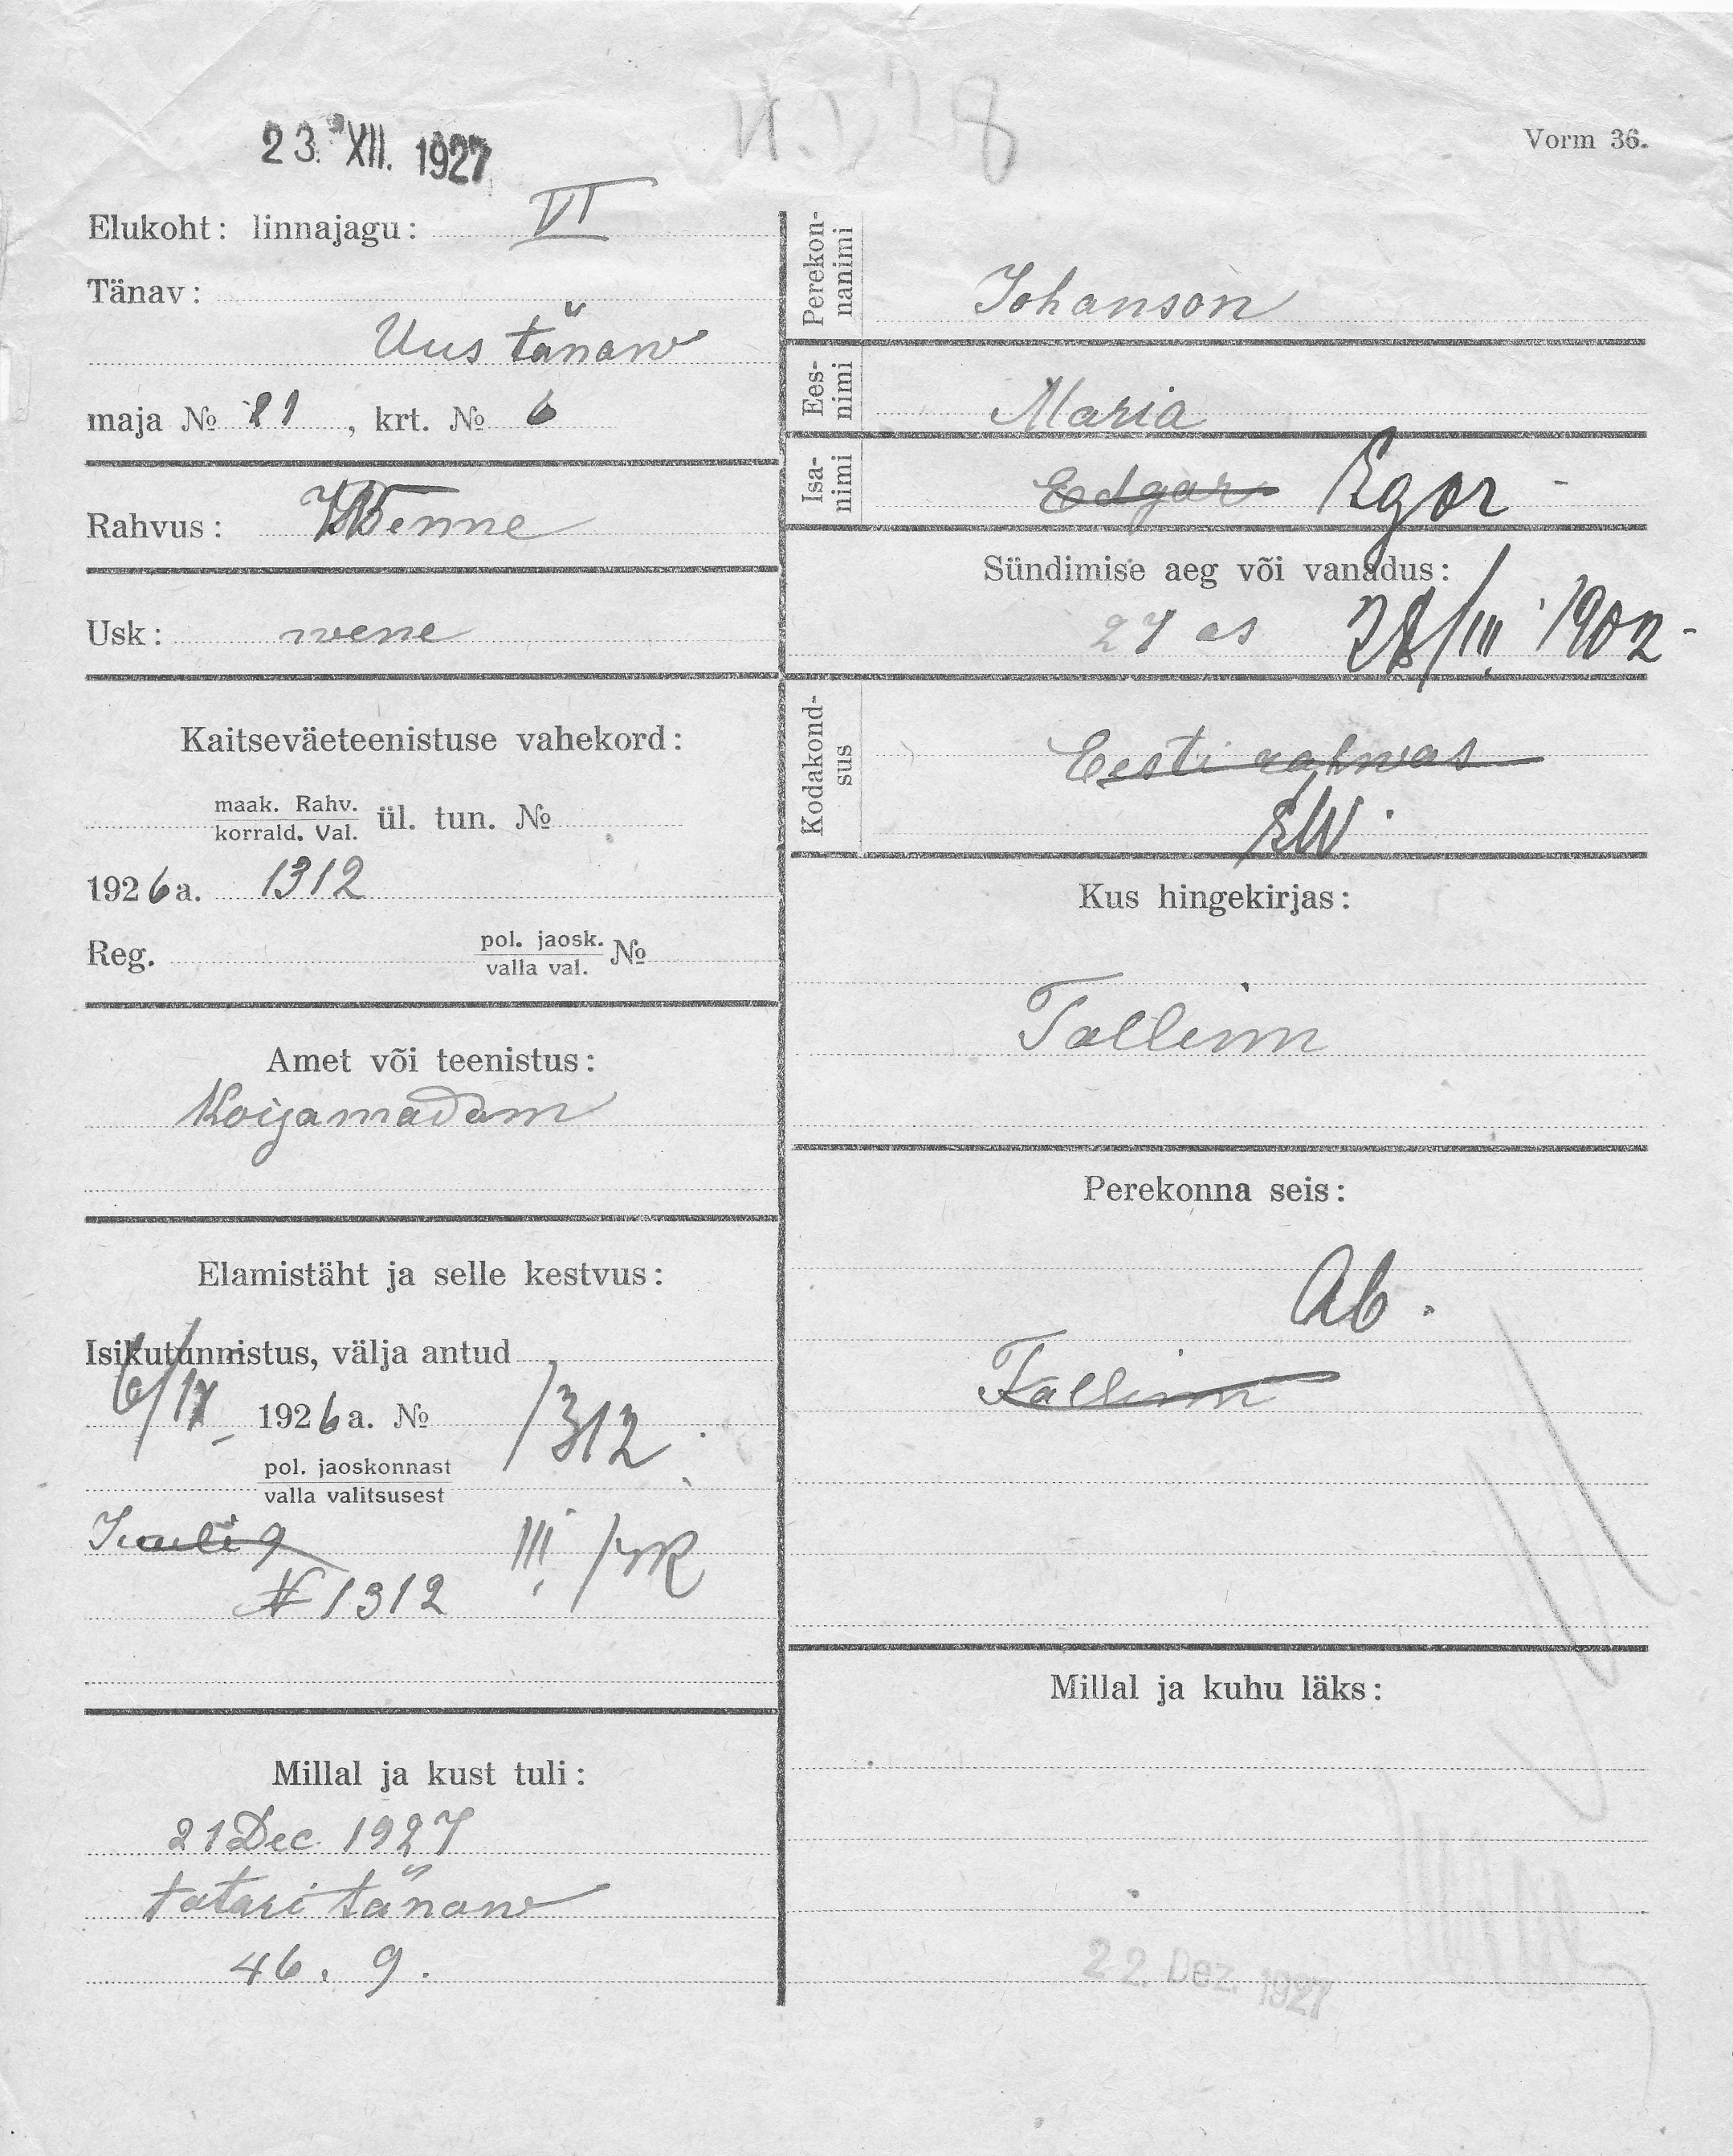 23. XII. 1927
Vorm 36.
Elukoht: linnajagu: VI
Tänav:
Uus tänaw
maja № 21, krt. № 6
Rahvus: Wenne
Usk: wene
Kaitseväeteenistuse vahekord:
maak. Rahv.
korrald. Val. ül. tun. №
1926 a. 1312
Reg. pol. jaosk.
valla val. №
Amet või teenistus:
Koijamadam
Elamistäht ja selle kestvus:
Isikutunnistus, välja antud
1926 a. № 1312
pol. jaoskonnast
valla valitsusest
Juuli 9 III
№ 1312
Millal ja kust tuli:
21 Dec. 1927
tatari tänaw
46. 9.
Perekon-
nanimi
Johanson
Ees-
nimi
Maria
Isa-
nimi
Edgar Egor
Sündimise aeg või vanadus:
27 as /III 1902
Kodakond-
sus
Eesti rahwas
EW.
Kus hingekirjas:
Tallinn
Perekonna seis:
Ab.
Tallinn
Millal ja kuhu läks:
22. Dez. 1927